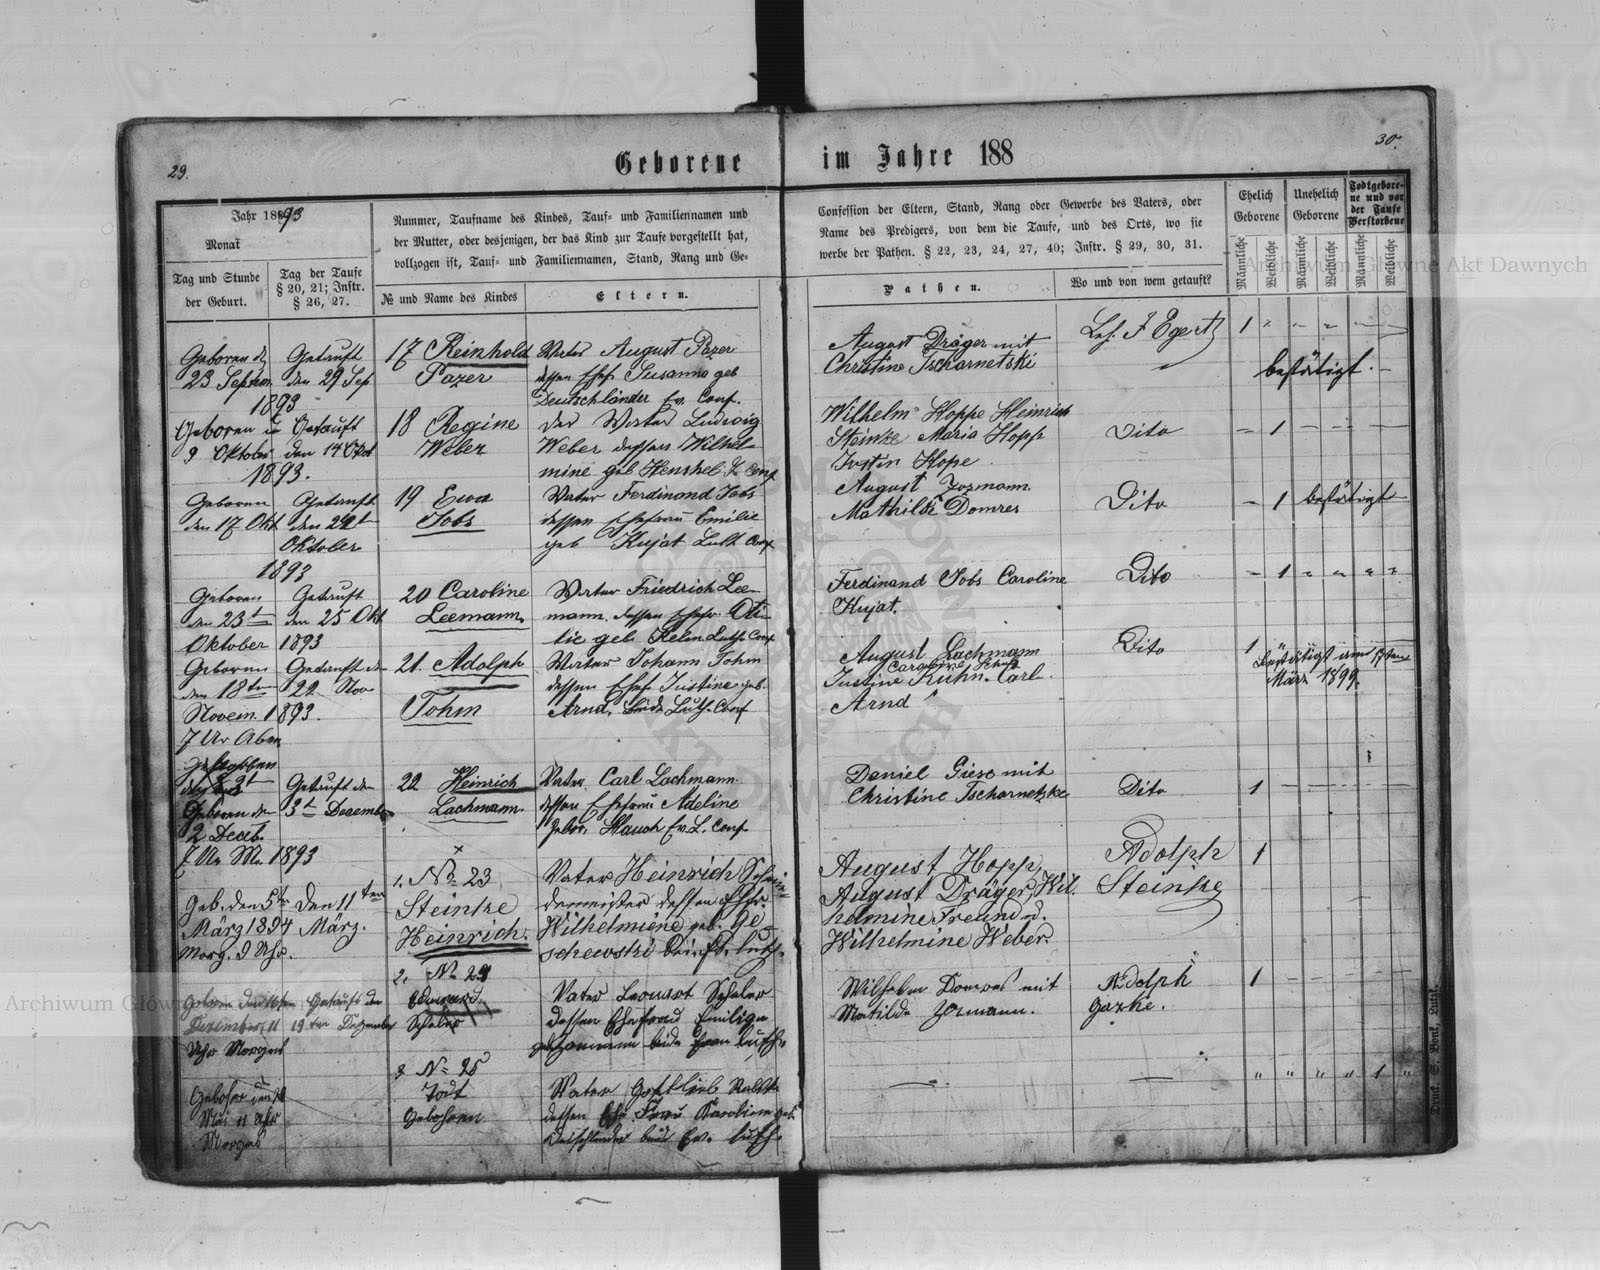 29.
30.
Geborene im Jahre 188
Jahr 1893
Monat
Tag und Stunde
der Geburt.
Tag der Taufe
§ 20, 21; Instr.
§ 26, 27.
Nummer, Taufname des Kindes, Tauf- und Familiennamen und
der Mutter, oder desjenigen, der das Kind zur Taufe vorgestellt hat,
vollzogen ist, Tauf- und Familiennamen, Stand, Rang und Ge-
№ und Name des Kindes
Eltern.
Confession der Eltern, Stand, Rang oder Gewerbe des Vaters, oder
Name des Predigers, von dem die Taufe, und des Orts, wo sie
werbe der Pathen. § 22, 23, 24, 27, 40; Instr. § 29, 30, 31.
Pathen.
Wo und von wem getauft?
Ehelich
Geborene
Unehelich
Geborene
Todtgebore-
ne und vor
der Taufe
Verstorbene
Männliche
Weibliche
Männliche
Weibliche
Männliche
Weibliche
Geboren d
23 Septem.
1893
Getauft
den 29 Sep
17 Reinhold
Pozer
Vater August Pozer
dessen Ehef. Susanna geb
Deutschländer Ev. Conf.
August Dräger mit
Christine Tscharnetski
Leh. F Egert
1
bestätigt.
Geboren
9 Oktober
1893.
Getauft
den 14 Okt
18 Regine
Weber
Der Vater Ludwig
Weber dessen Wilhel-
mine geb Henshel Conf
Wilhelm Hoppe Heinrich
Steinke Maria Hopp
Justin Hope
Dito
1
Geboren
den 17 Okt
Getauft
den 22t
Oktober
1893
19 Ewa
Jobs
Vater Ferdinand Jobs
dessen Ehefrau Emilie
geb Kujat Luth Conf
August Jozmann
Mathilde Domres
Dito
1 bestätigt
Geboren
den 23t
Oktober 1893
Getauft
den 25 Okt
20 Caroline
Leemann.
Vater Friedrich Lee-
mann. dessen Ehefr. Oti-
lie geb. Luth Conf
Ferdinand Jobs Caroline
Kujat.
Dito
1
Geboren
den 18ten
Novem. 1893.
7 Ur Aben
Getauft den
22 Nov
21. Adolph
Tohm
Vater Johann Tohm
dessen Ehef. Justine geb.
Arnd, beide Luth. Conf
August Lachmann
Justine Kuhn. Carl
Arnd
Dito
1
bestätigt am
März 1899.
gestorben
Geboren den
2 Decb.
7 Ur Mr. 1893
Getauft den
3t Dezember
22 Heinrich
Lachmann.
Vater Carl Lachmann
dessen Ehefrau Adeline
gebor. Hauch Ev. L. Conf
Daniel Giese mit
Christine Tscharnetzke
Dito
1
Geb. den 5ten
März 1894
Morg. 9 Uhr.
Den 11ten
März.
1. № 23
Steinke
Heinrich.
Vater Heinrich Schmie-
demeister dessen Ehfr.
Wilhelmiene geb. Ge-
schewski
August Hopp,
August Dräger, Wil.
helmine Freund u.
Wilhelmine Weber.
Adolph
Steinke
1
Geboren den 16ten
Dezember, 11
Uhr Morgens
Getauft den
19ten Dezember
2. № 24
Eduard.
Schaler
Vater Leonart Schaler
dessen Ehefrau Emilije
Wilhelm Domres mit
Matilda Jozmann.
Adolph
Gazke.
1
Geboren
Mai 11 Uhr
Morgens
3 № 25
Todt
Geboren
Vater Gottlieb
dessen Ehe Frau Karoline geb.
Deutschlander beide Ev. luth.
1
Druck. S: Bont, Lutzk.
Archiwum Główne Akt Dawnych